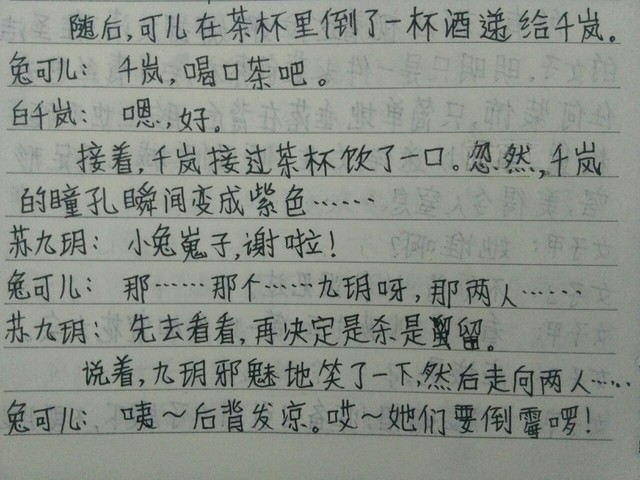 随后,可儿在茶杯里倒了一杯酒递给千岚。
兔可儿: 千岚,喝口茶吧。
白千岚: 嗯,好。
接着,千岚接过茶杯饮了一口。忽然,千岚
的瞳孔瞬间变成紫色……
苏九玥: 小兔崽子,谢啦!
兔可儿: 那……那个……九玥呀,那两人……
苏九玥: 先去看看,再决定是杀是留。
说着,九玥邪魅地笑了一下,然后走向两人……
兔可儿: 咦~后背发凉。哎~她们要倒霉啰!